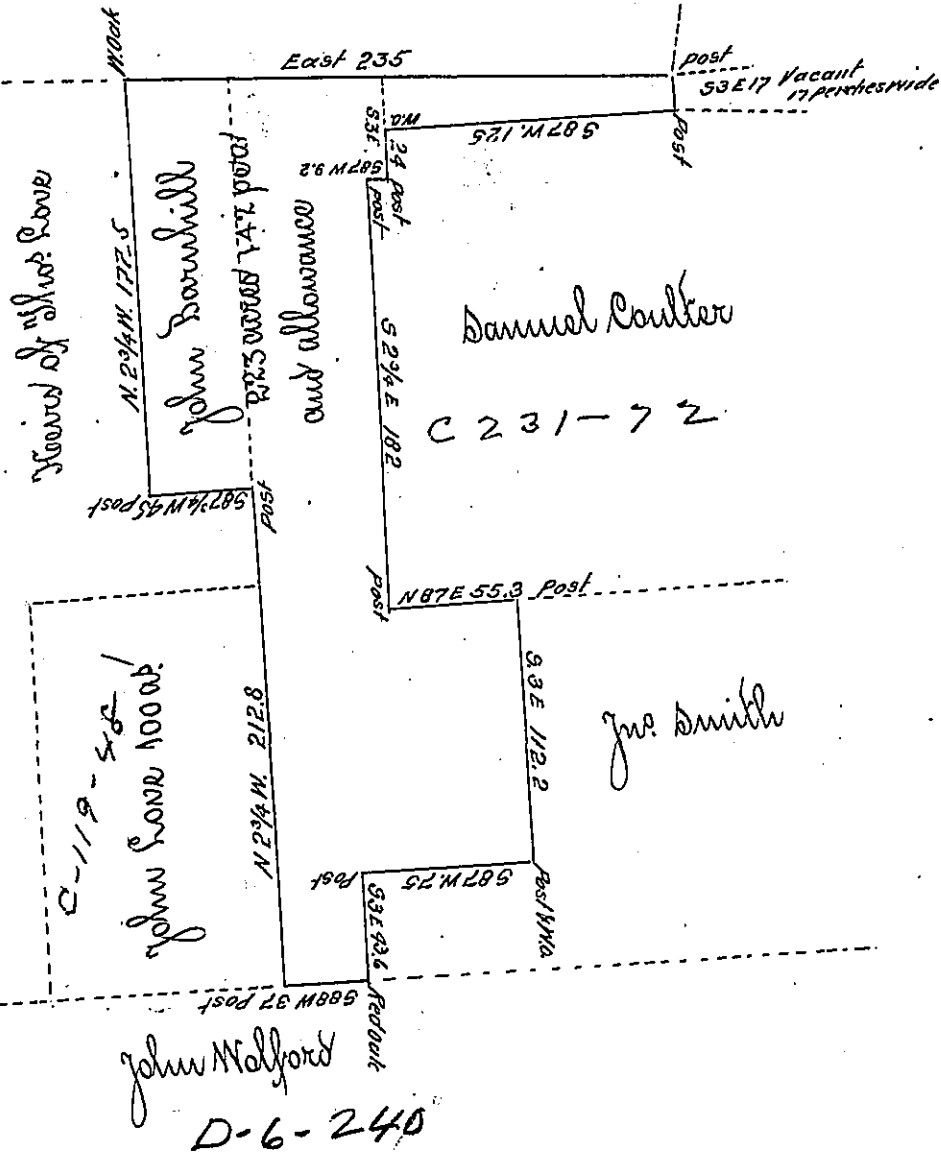 W.Oak
East 235
post
S3E17 Vacant
17 perches wide
Post
S87W.125
W.O.
S.3E. 24 post
S87W 9.2
post
Heirs of Thos. Love
N. 2 3/4 W. 177.5
John Barnhill
223 acres 142 per
and allowance
Samuel Coulter
C 231-72
S 2 3/4 E 182
S87 3/4 W 45 post
post
Post
N87E 55.3 Post
S.3E 112.2
Jno. Smith
C-119-
John Love 100 as.
N 2 3/4 W. 212.8
Post
S87W.75
Post
S3E
Red oak
S88W 37 post
John Walford
D-6-240